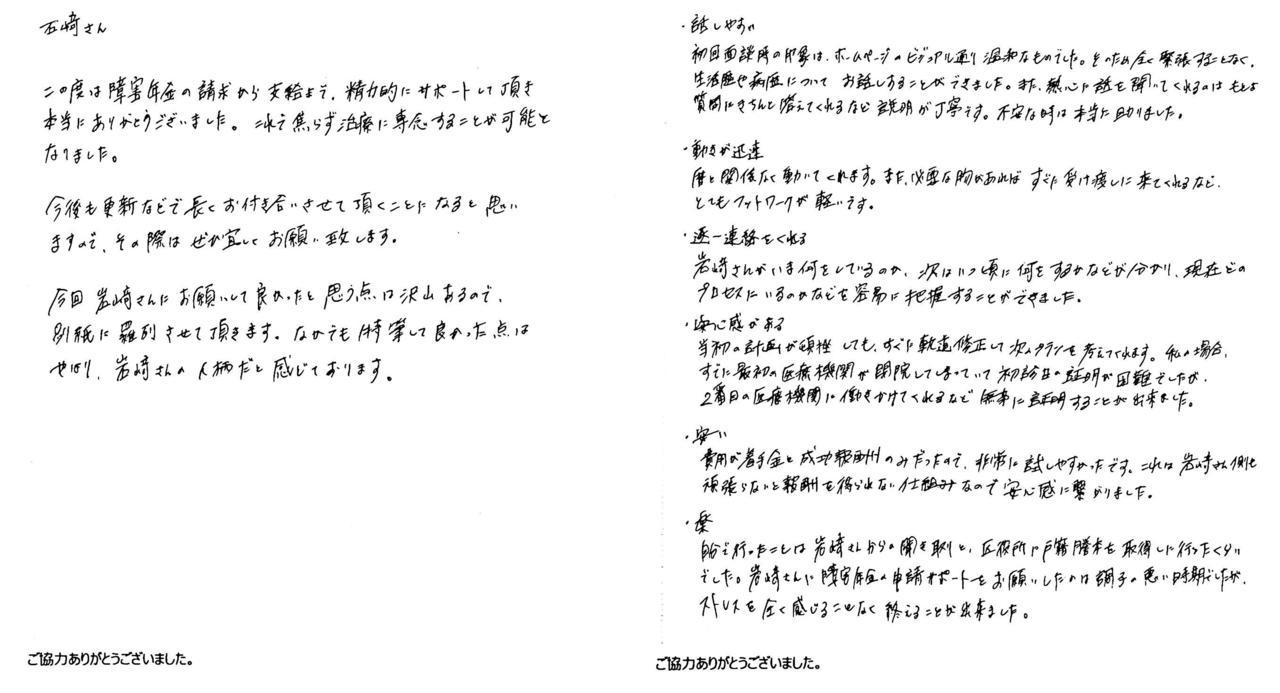 岩崎さん
この度は障害年金の請求から支給まで、精力的にサポートして頂き
本当にありがとうございました。これで焦らず治療に専念することが可能と
なりました。
今後も更新などで長くお付き合いさせて頂くことになると思い
ますので、その際はぜひ宜しくお願い致します。
今回岩崎さんにお願いして良かったと思う点は沢山あるので、
別紙に羅列させて頂きます。なかでも特筆して良かった点は
やはり、岩崎さんの人柄だと感じております。
ご協力ありがとうございました。
・話しやすい
初回面談時の印象は、ホームページのビジュアル通り温和なものでした。そのため全く緊張することなく、
生活歴や病歴について お話しすることができました。また、熱心に話を聞いてくれるのはもとより
質問にきちんと答えてくれるなど説明が丁寧です。不安な時は本当に助かりました。
・動きが迅速
暦と関係なく動いてくれます。また、必要な物があれば すぐに受け渡しに来てくれるなど、
とてもフットワークが軽いです。
・逐一連絡をくれる
岩崎さんがいま何をしているのか、次はいつ頃に何をするかなどが分かり、現在どの
プロセスにいるのかなどを容易に把握することができました。
・安心感がある
当初の計画が頓挫しても、すぐに軌道修正して次のプランを考えてくれます。私の場合、
すでに最初の医療機関が閉院してしまっていて初診日の証明が困難でしたが、
2番目の医療機関に働きかけてくれるなど 無事に証明することが出来ました。
・安い
費用が着手金と成功報酬のみだったので、非常に試しやすかったです。これは岩崎さん側も
頑張らないと報酬を得られない仕組みなので安心感に繋がりました。
・楽
自分で行ったことは岩崎さんからの聞き取りと、区役所に戸籍謄本を取得しに行ったくらい
でした。岩崎さんに障害年金の申請サポートをお願いしたのは調子の悪い時期でしたが、
ストレスを全く感じることなく終えることが出来ました。
ご協力ありがとうございました。